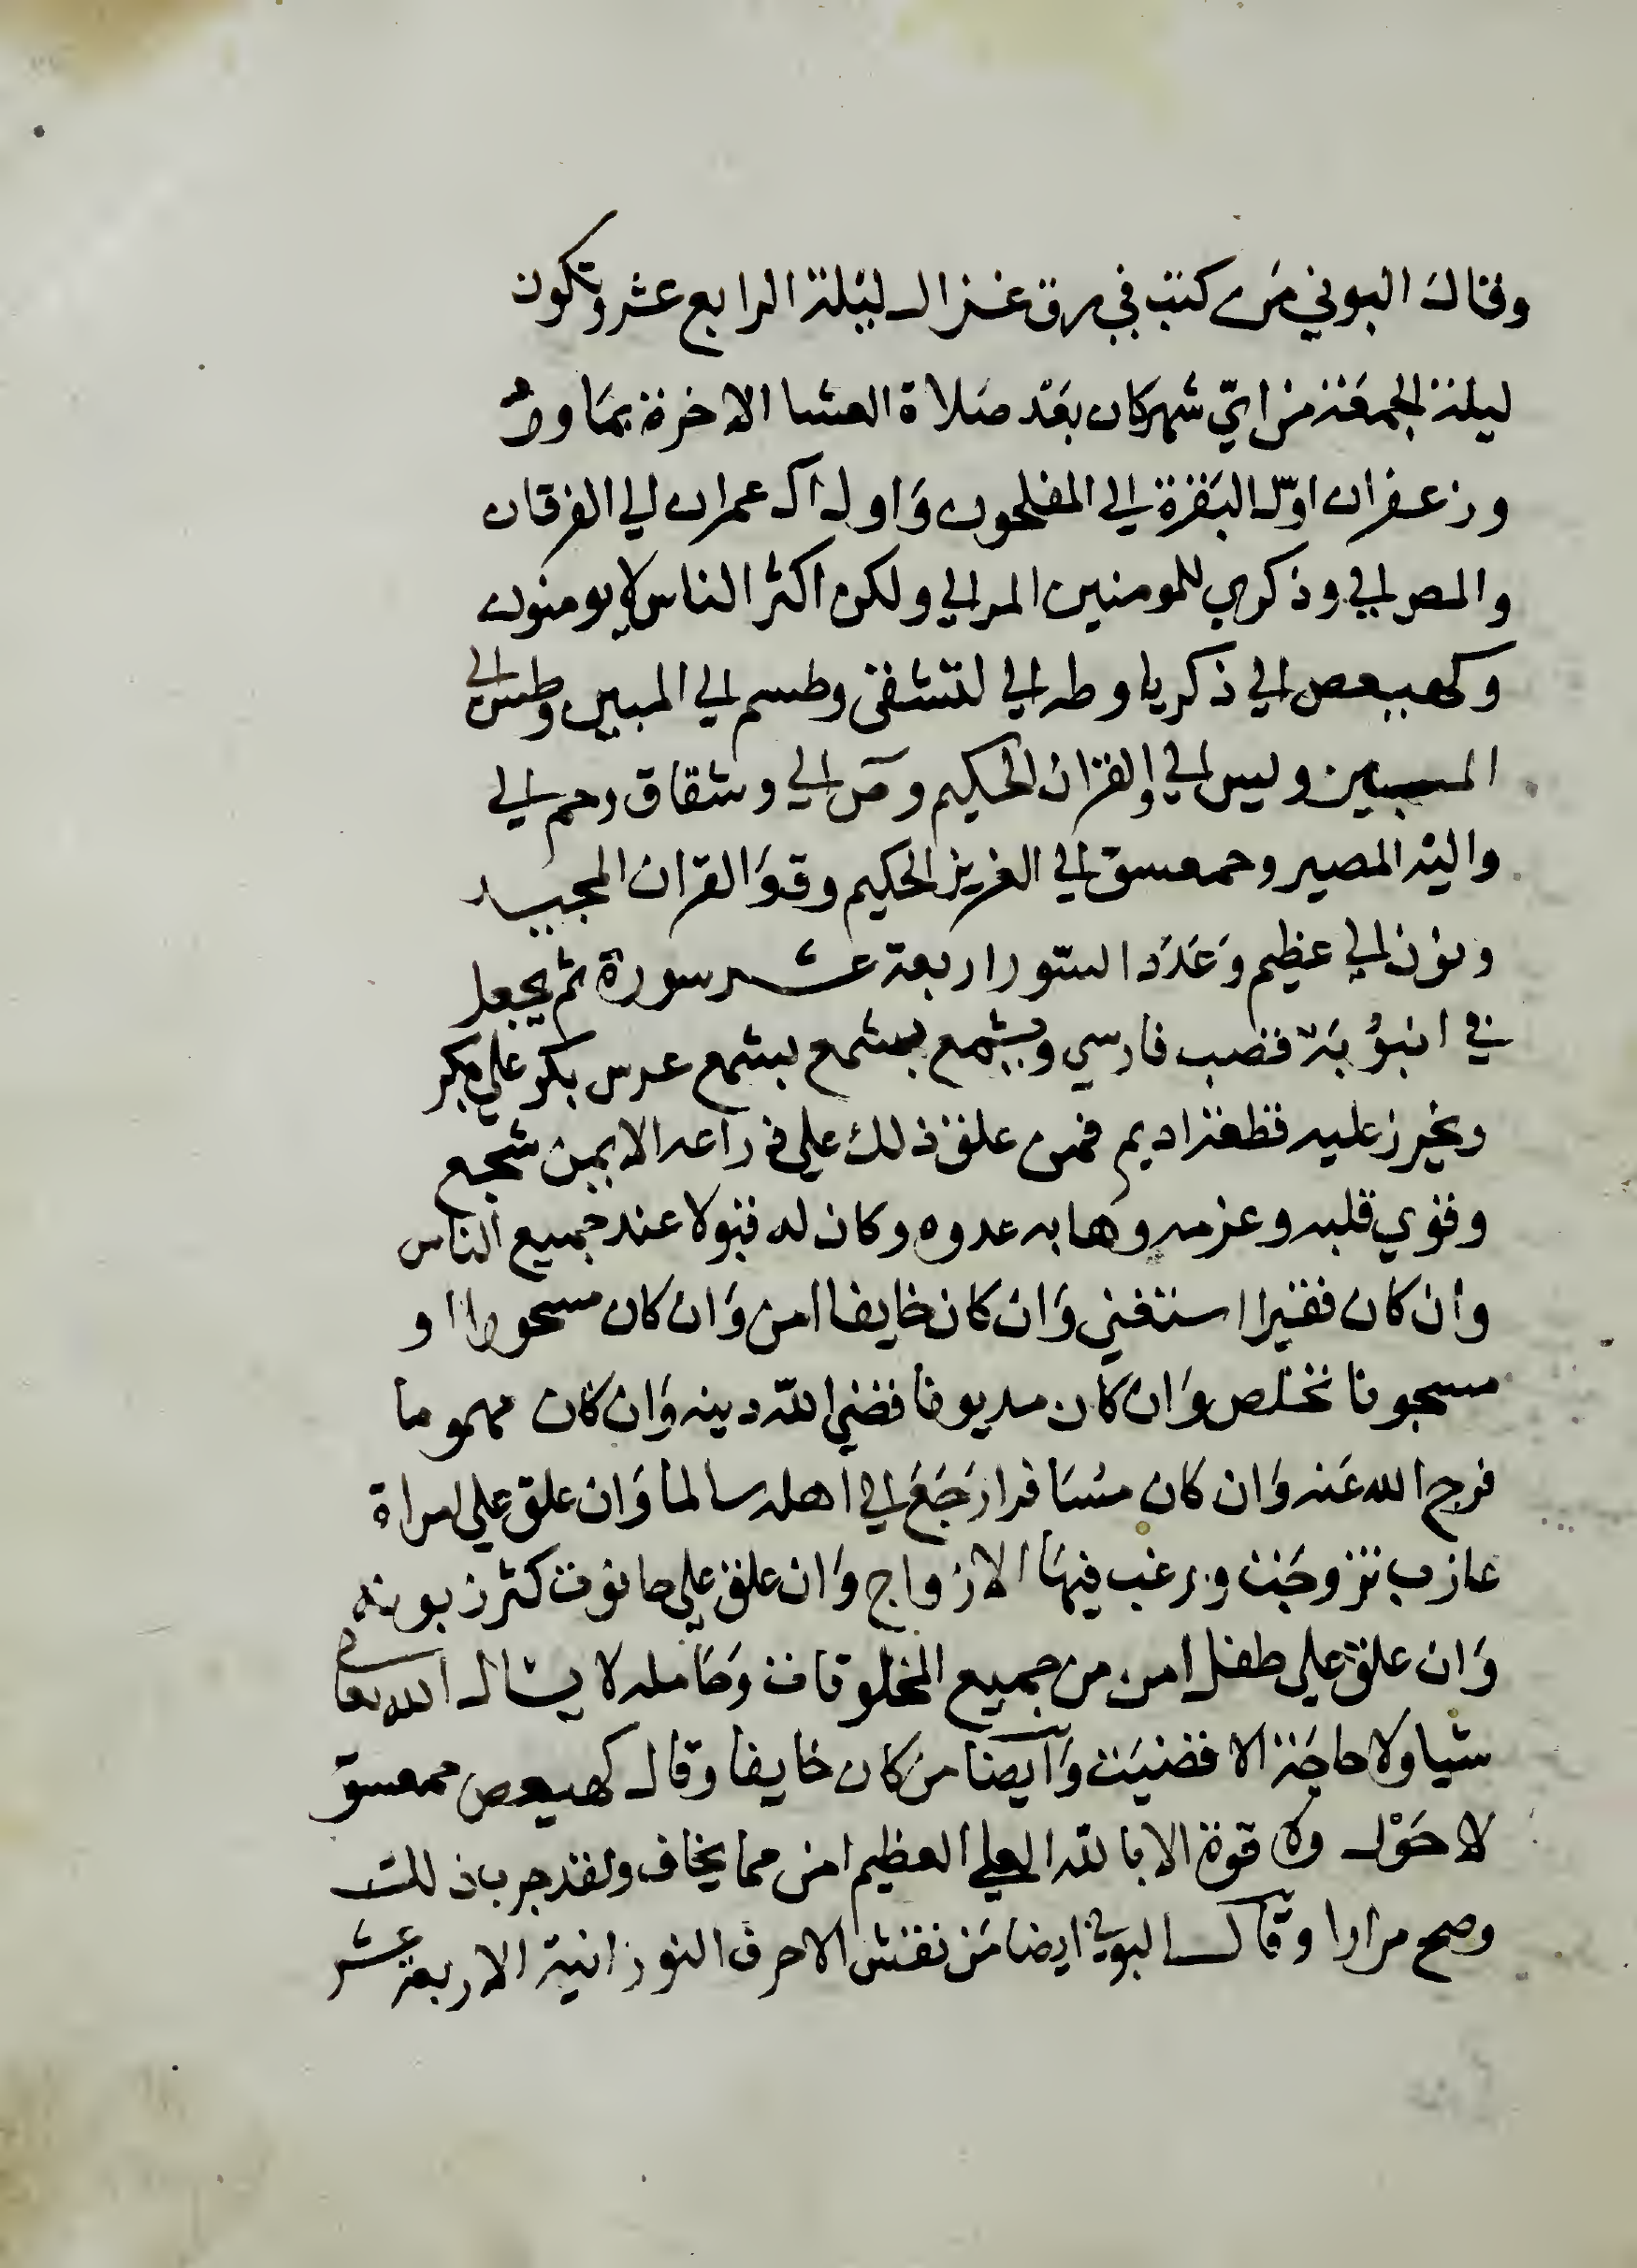 وقال البوني من كتب في رق غزال ليلة الرابع عشر وتكون
ليلة الجمعة من اي شهر كان بعد صلاة العشا الاخرة بما ورد
وزعفران اول البقرة الي المفلحون وَاول ال عمران الي الفرقان
والمص الي وذكري للمومنين المر الي ولكن اكثر الناس لا يومنون
وكهيعص الي ذكريا وطه الي لتشقي وطسم الي المبين وطس الي
المبين ويس الي والقران الحكيم وص الي وشقاق وحم الي
واليه المصير وحمعسق الي العزيز الحكيم وق وَالقران المجيد
ونون الي عظيم وَعَدَد السور اربعة عشر سورة ثم يجعل
في انبوُبَة قصب فارسي ويشمع بشمع عرس بكر علي بكر
ويخرز عليه قطعة اديم فمن علق ذلك علي ذراعه الايمن شجع
وقوي قلبه وعزمه وهابه عدوه وكان له قبولا عند جميع الناس
وان كان فقيرا استغني وَان كان خايفا امن وَان كان مسحورا او
مسجونا تخلص وَان كان مديونا قضي الله دينه وَان كان مهموما
فرج الله عَنه وَان كان مسَافرا رَجَعَ الي اهله سالما وَان علق علي امراة
عازب تزوجَت ورغب فيهَا الازواج وَان علق علي حانوت كثر زبونه
وَان علق علي طفل امن من جميع المخلوقات وَحَامله لا يسال الله تعالي
شيا ولا حاجَة الا قضيَت وَايضا من كان خايفا وقال كهيعص حمعسق
لا حَوْل ولا قوة الا بالله العلي العظيم امن مما يخاف ولقد جرب ذلك
وصح مرارا وقال البوني ايضا مَن نقش الاحرف النورانية الاربعة عشر